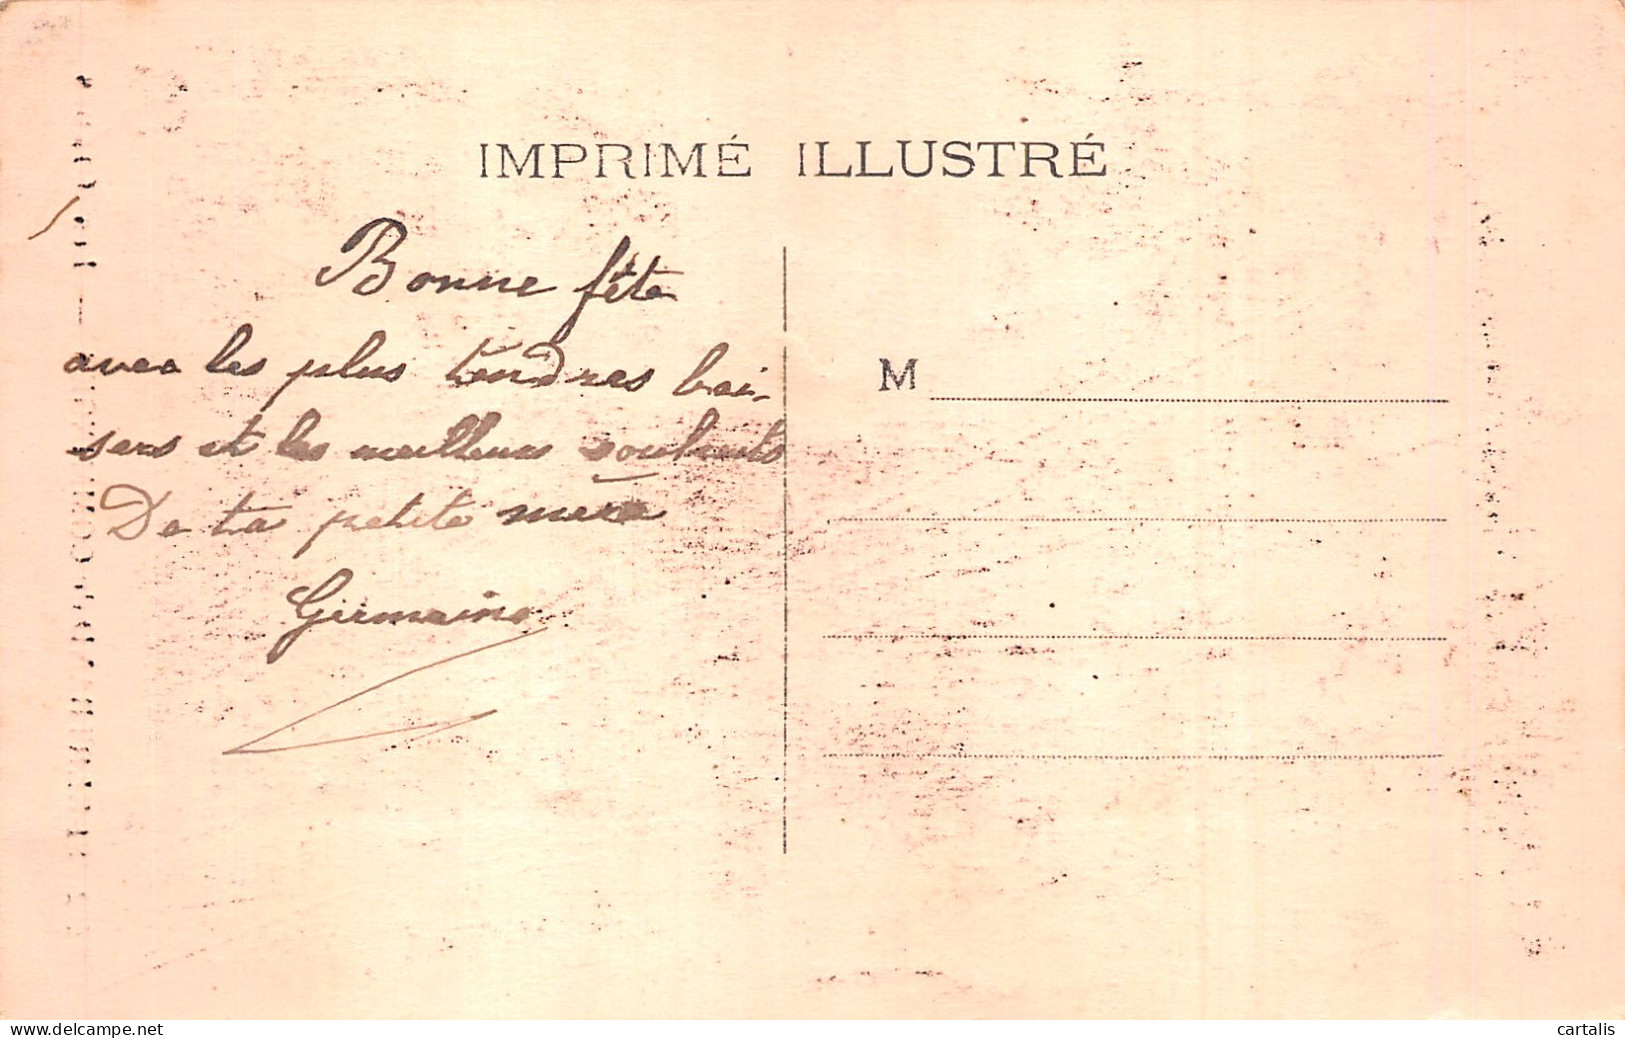 IMPRIMÉ ILLUSTRÉ
Bonne fête
avec les plus tendres bai-
sers et les meilleurs souhaits
De ta petite mère
Germaine
M
www.delcampe.net
cartalis